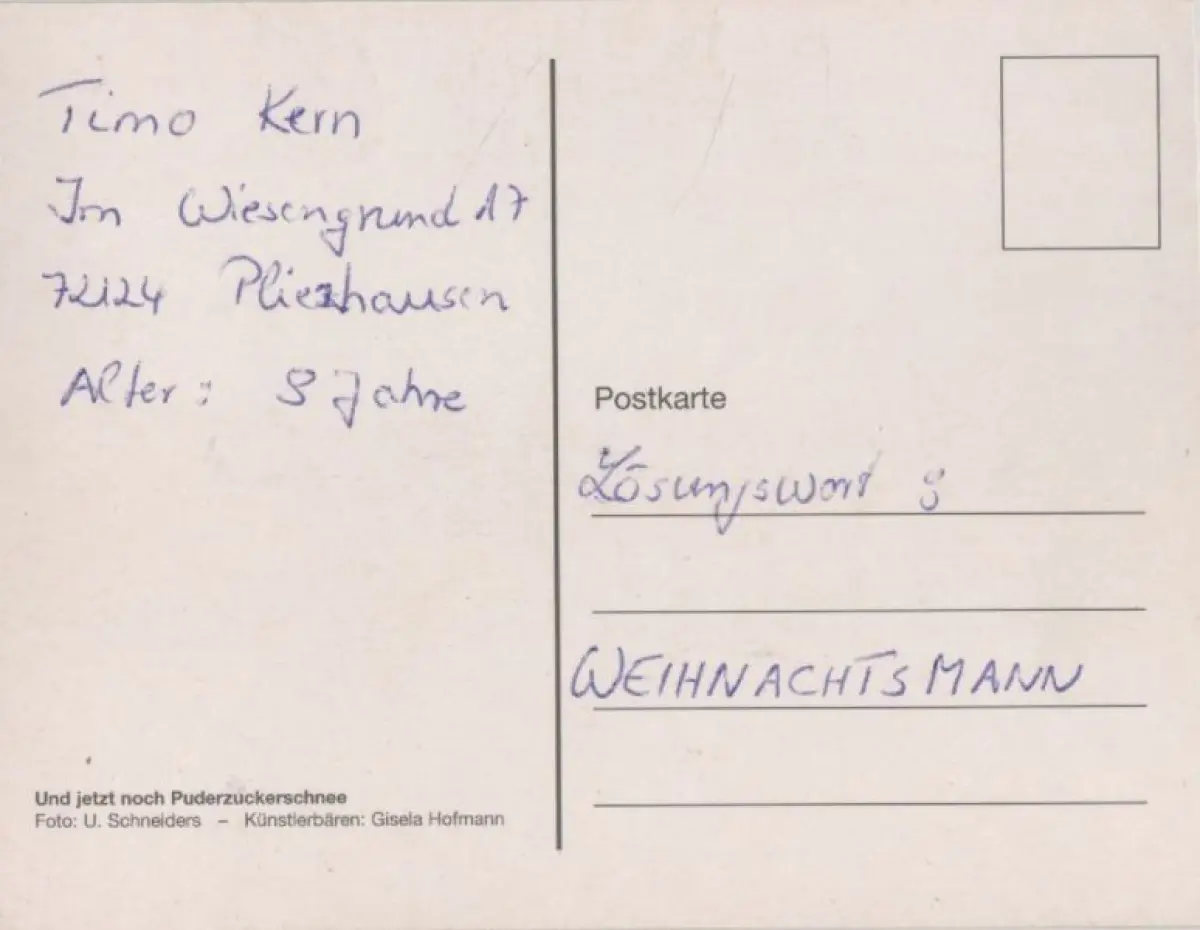 Timo Kern
Im Wiesengrund 17
72124 Pliezhausen
Alter: 8 Jahre
Und jetzt noch Puderzuckerschnee
Foto: U. Schneiders – Künstlerbären: Gisela Hofmann
Postkarte
Lösungswort:
WEIHNACHTSMANN